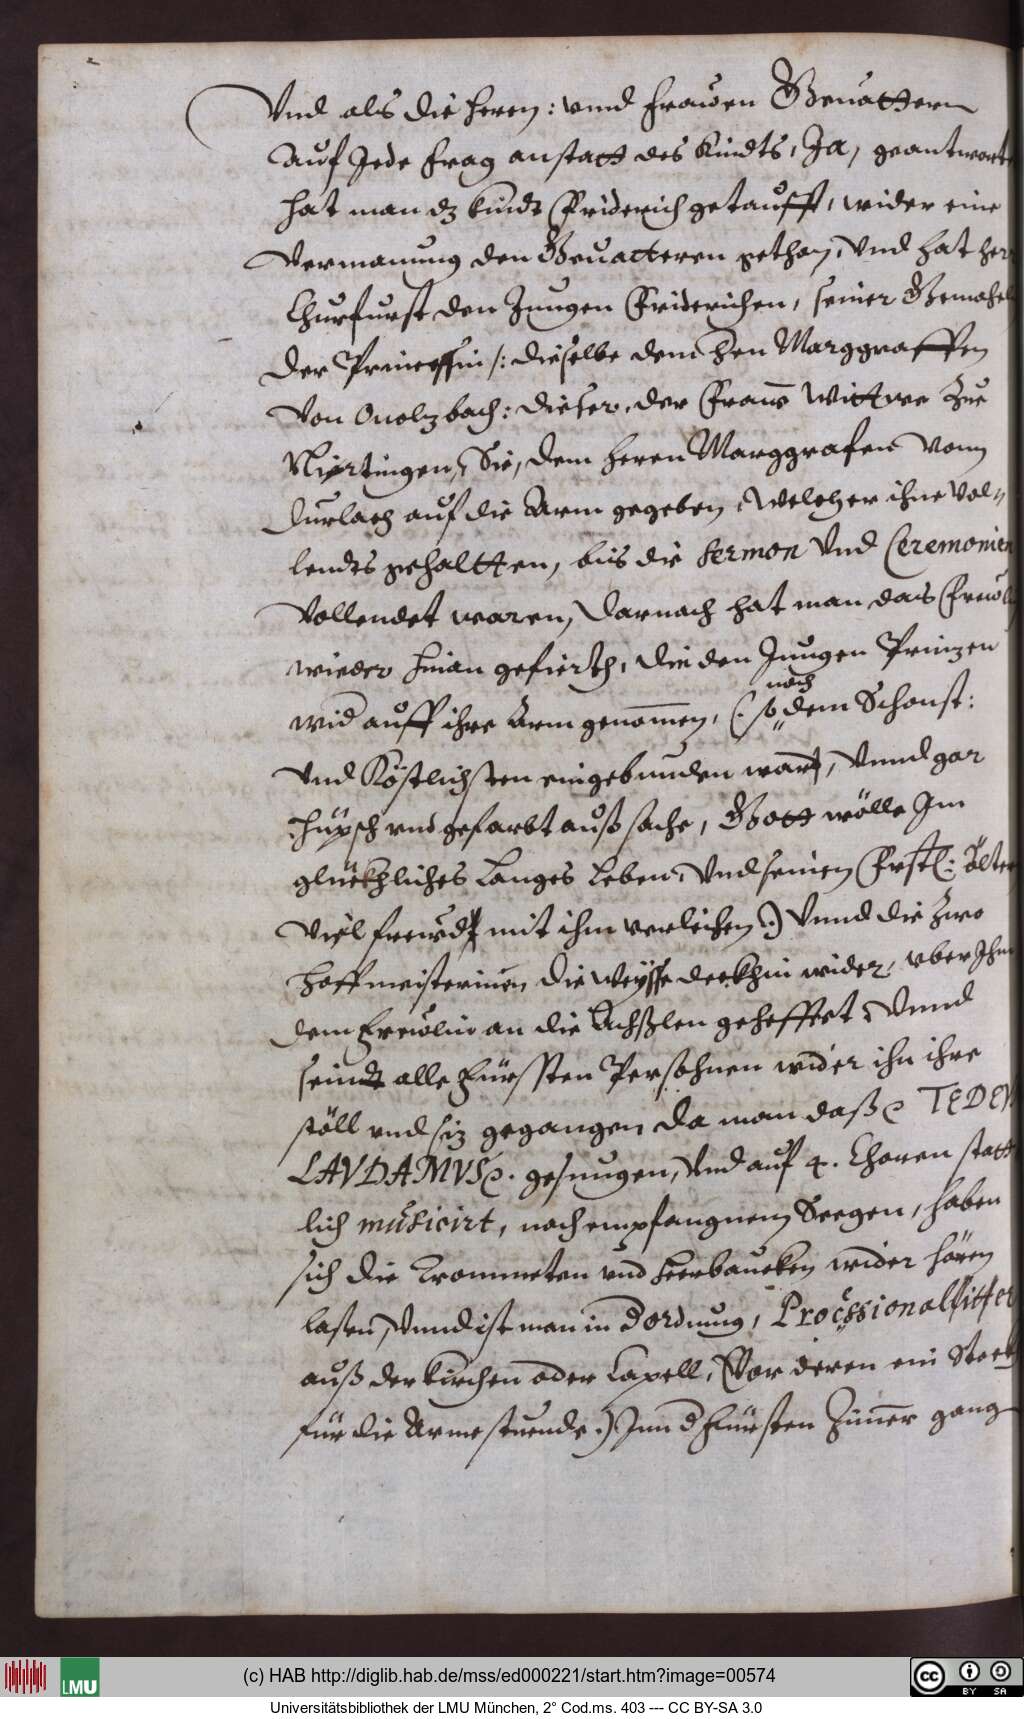 Vnd als die herrn: vnnd frawen Gevattern
auf Jede frag anstatt des Kindts, Ja, geantwort
hat man dz kindt Friderich getaufft, wider eine
Vermanung den Gevatteren gethan, Vnd hat herr
Churfurst den Jungen Friderichen, seiner Gemahel
der Princessin /: dieselbe dem hen Marggraffen
von Onoltzbach: dieser, der Frauw Wittwe Zue
Niertingen, Sie, dem herrn Marggrafen vonn
Durlach auf die Arm gegeben, Welcher ihne Vol-
lendts gehaltten, bis die Sermon Vnd Ceremonien
Vollendet waren, Darnach hat man das
wieder hinan gefierth, die den Jungen Prinzen
wid auff ihre Arm genommen, (: so noch dem Schonst:
vnd Köstlichsten eingebunden wardt, Vnnd gar
hüpsch vnd gefarbt auß sahe, Gott wölle Im
glückhliches Langes Leben, Vnd seinen Frstl: älter
viel frewdt mit ihm verleihen:) Vnnd die Zwo
hoffmeisterinen die Weysse deckhin wider, vber Ihm
dem Frewlin an die Achßlen gehefftet, Vnnd
seindt alle Fürsten Persohnen wider ihn ihre
ställ vnd siz gegangen da man daß TE DEVM
LAVDAMVS. gesungen, Vnd auf 4. Choren statt
lich musicirt, nach empfangnem Seegen, haben
sich die Trommeten vnd heerbaucken wider hören
lasen, Vnnd ist man in d ordnung, Processionaliter
auß der kirchen oder Capell, (Vor deren ein Stockh
für die Arme stuende.) Inn d Fürsten Zimer gang
(c) HAB http://diglib.hab.de/mss/ed000221/start.htm?image=00574
LMU
cc BY SA
Universitätsbibliothek der LMU München, 2° Cod.ms. 403 --- CC BY-SA 3.0